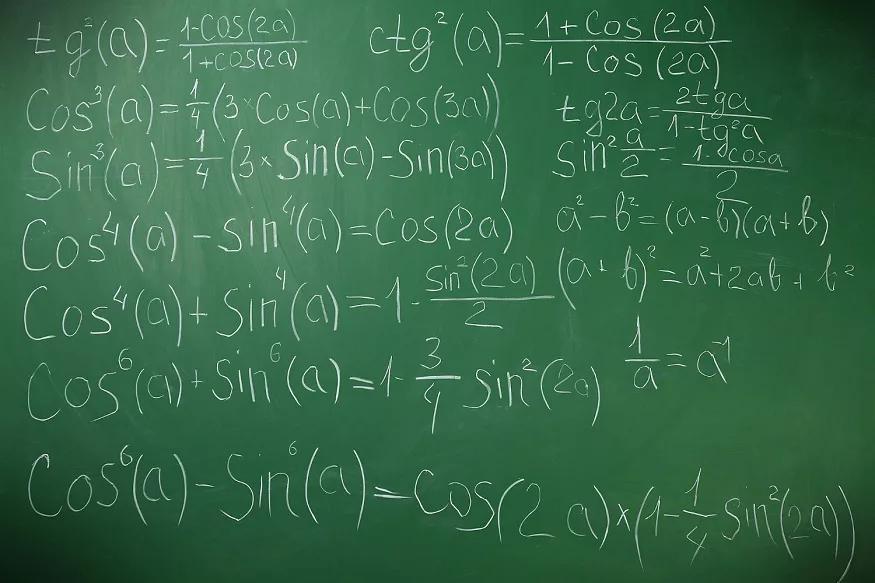 tg²(a)=(1-cos(2a))/(1+cos(2a))
ctg²(a)=(1+Cos(2a))/(1-Cos(2a))
Cos³(a)=1/4(3×Cos(a)+Cos(3a))
tg2a=2tga/(1-tg²a)
Sin³(a)=1/4(3×Sin(a)-Sin(3a))
Sin² a/2=(1-cosa)/2
Cos⁴(a)-Sin⁴(a)=Cos(2a)
a²-b²=(a-b)(a+b)
Cos⁴(a)+Sin⁴(a)=1-Sin²(2a)/2
(a+b)²=a²+2ab+b²
1/a=a⁻¹
Cos⁶(a)+Sin⁶(a)=1-3/4 Sin²(2a)
Cos⁶(a)-Sin⁶(a)=Cos(2a)×(1-1/4 Sin²(2a))